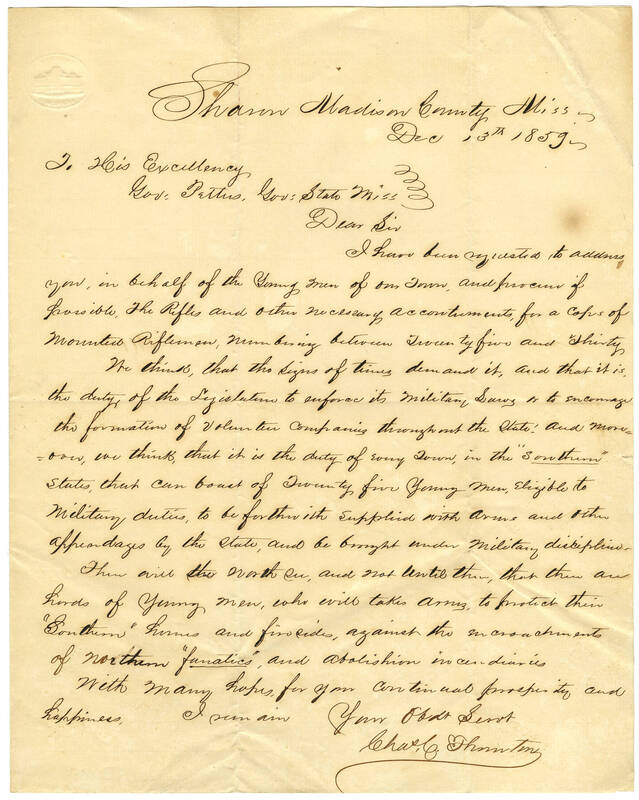 Sharon Madison County Miss
Dec 13th 1859
To His Excellency
Gov: Pettus, Gov: State Miss
Dear Sir
I have been requested to address
you, in behalf of the Young men of our Town, and procure if
possible, The Rifles and other necessary accoutrements, for a Corps of
Mounted Riflemen, numbering between Twenty five and Thirty
We think, that the signs of times demand it, and that it is
the duty, of the Legislature to enforce its Military Laws or to encourage
the formation of Volunteer Companies throughout the State: and More=
=over, we think, that it is the duty of every Town, in the "Southern"
States, that can boast of Twenty five Young men, Eligible to
Military duties, to be forthwith supplied with Arms and other
appendages by the State, and be brought under Military discipline.
Then will the North see, and not until then, that there are
hords of Young men, who will takes Arms, to protect their
"Southern" homes and firesides, against the encroachments
of northern "fanatics", and abolishion incendiaries
With many hopes, for your continual prosperity and
happiness, I remain Your Obdt Servt
Chas. C. Thornton